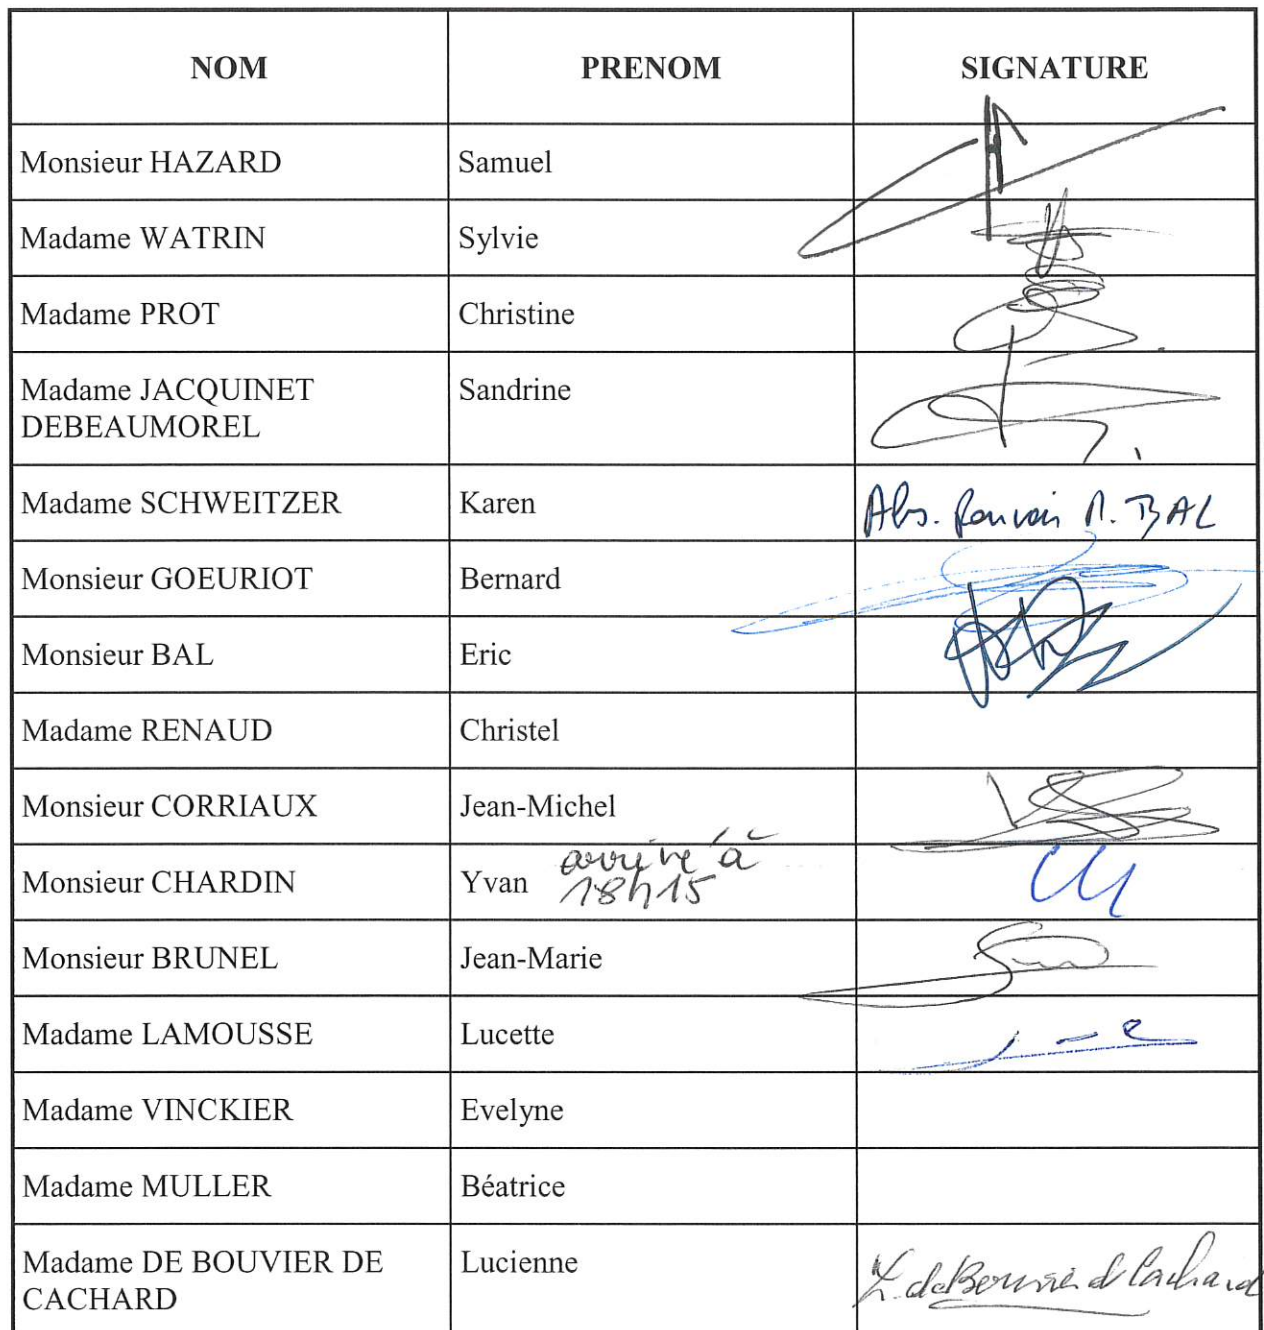 NOM PRENOM SIGNATURE
Monsieur HAZARD Samuel
Madame WATRIN Sylvie
Madame PROT Christine
Madame JACQUINET Sandrine
DEBEAUMOREL
Madame SCHWEITZER Karen Abs. Pouvoir M. BAL
Monsieur GOEURIOT Bernard
Monsieur BAL Eric
Madame RENAUD Christel
Monsieur CORRIAUX Jean-Michel
Monsieur CHARDIN Yvan arrivé à
18h15
Monsieur BRUNEL Jean-Marie
Madame LAMOUSSE Lucette
Madame VINCKIER Evelyne
Madame MULLER Béatrice
Madame DE BOUVIER DE Lucienne L. de Bouvier d Cachard
CACHARD